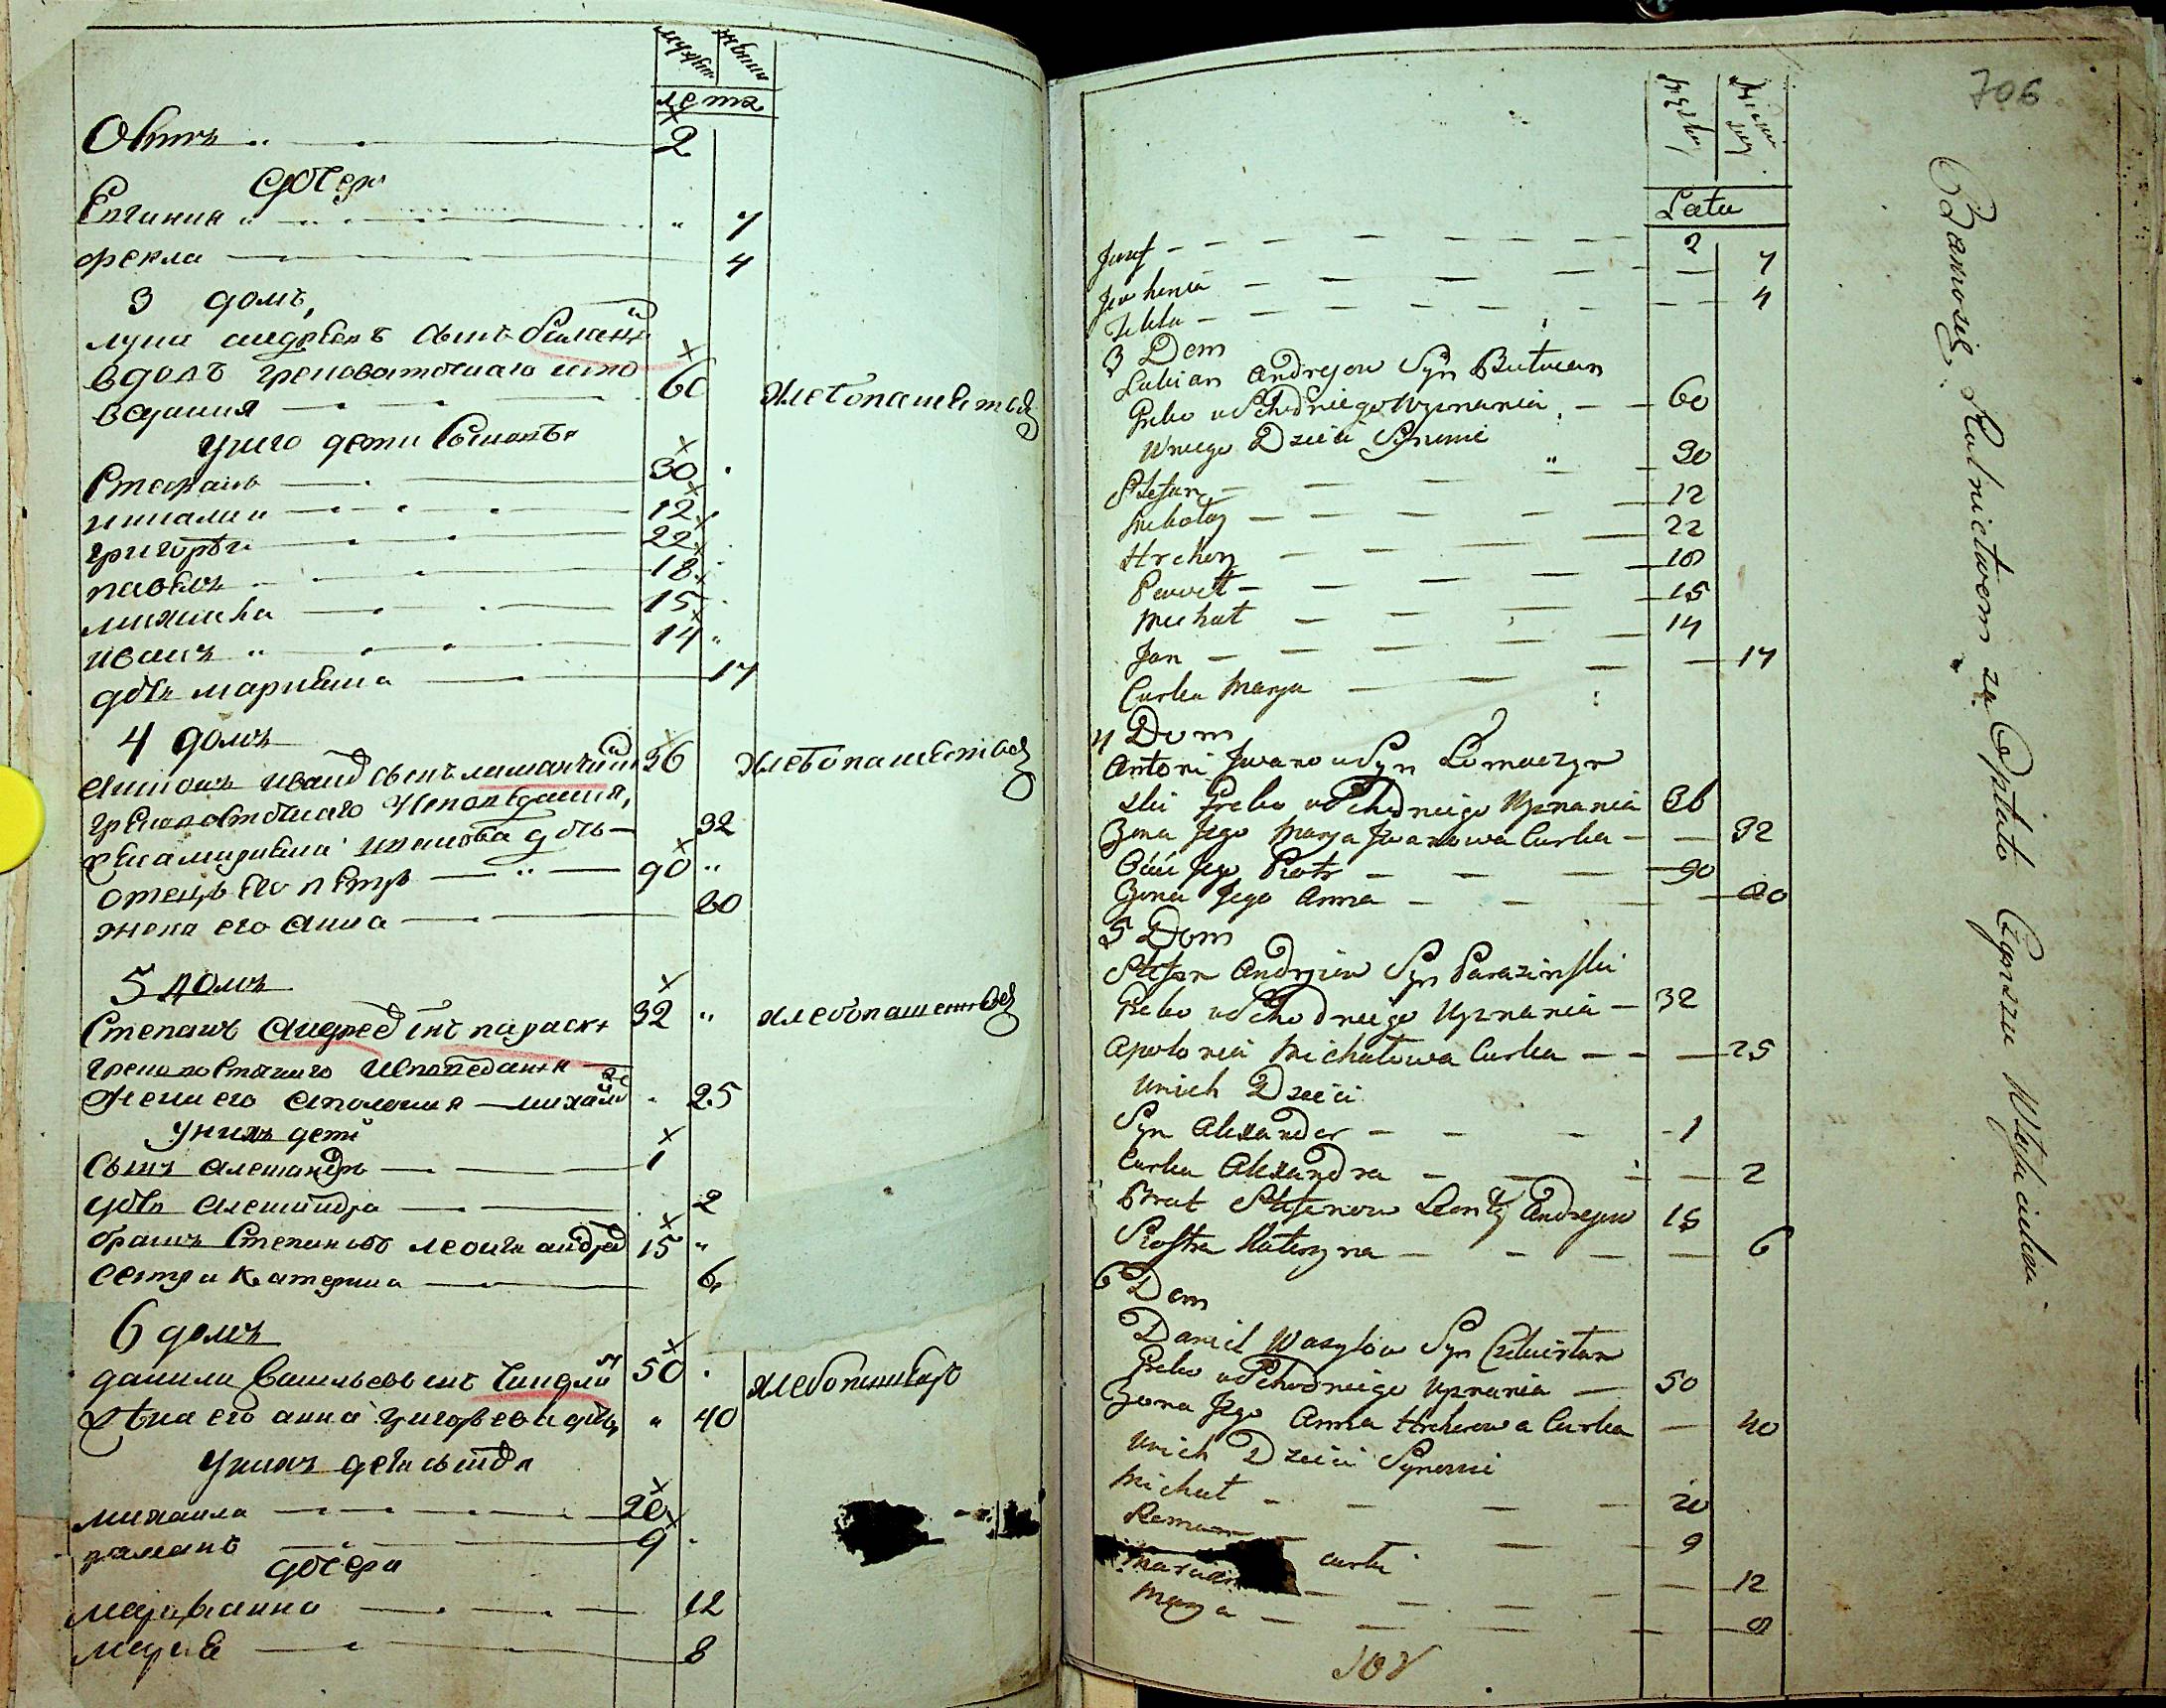 мужеск женски
лета
Осипъ 2
дочери
Евгиния 7
Фекла 4
3 домъ,
Луки Андреевъ сынъ
60 хлебопашествомъ
у него дети
Степанъ 30
Николаи 12
Григорей 22
Павелъ 18
Михаила 15
Иванъ 14
дочь Марияна 17
4 домъ
Антонъ Иванов сынъ 36 хлебопашествомъ
исповедания,
жена Марияна Иванова дочь 32
отецъ его Петръ 90
жена его Анна 80
5 домъ
Степанъ Андреев 32 хлебопашествомъ
исповедания
жена его Аполония Михаило 25
у нихъ дети
сынъ Александръ 1
дочь Александра 2
братъ Степановъ Леонти Андрев 15
сестра Катерина 6
6 домъ
Данила Васильевъ 50
жена его Анна Григорьева дочь 40
у нихъ дети
Михаила 20
Раманъ 9
дочери
Мариванна 12
Марья 8
706
Męzkie Żeńskiey
Lata
Juzef 2
Jewhenia 7
Tekla 4
3 Dom
Lukian Andrejow Syn
Greko wschodniego wyznania 60
W niego Dzieci Synowie
Stefan 30
Mikołay 12
Hrehory 22
Paweł 18
Michał 15
Jan 14
Curka Marya 17
4 Dom
Antoni Iwanow Syn Łomaczyn
ski Greko wschodniego wyznania 36
Żona Jego Marya Iwanowa Curka 32
Ociec Jego Piotr 90
Żona Jego Anna 80
5 Dom
Stefan Andrejew Syn Parazinski
Greko wschodniego wyznania 32
Apolonia Michałowa Curka 25
U nich Dzieci
Syn Alexander 1
Curka Alexandra 2
Brat Stefanow Leonty Andrejew 15
Siostra Kateryna 6
6 Dom
Daniel Wasylow Syn
Greko wschodniego wyznania 50
Żona Jego Anna Hrehorowa Curka 40
U nich Dzieci Synowie
Michał 20
Roman 9
curki
12
Marya 8
Rolnictwem za Opłato Czynszu